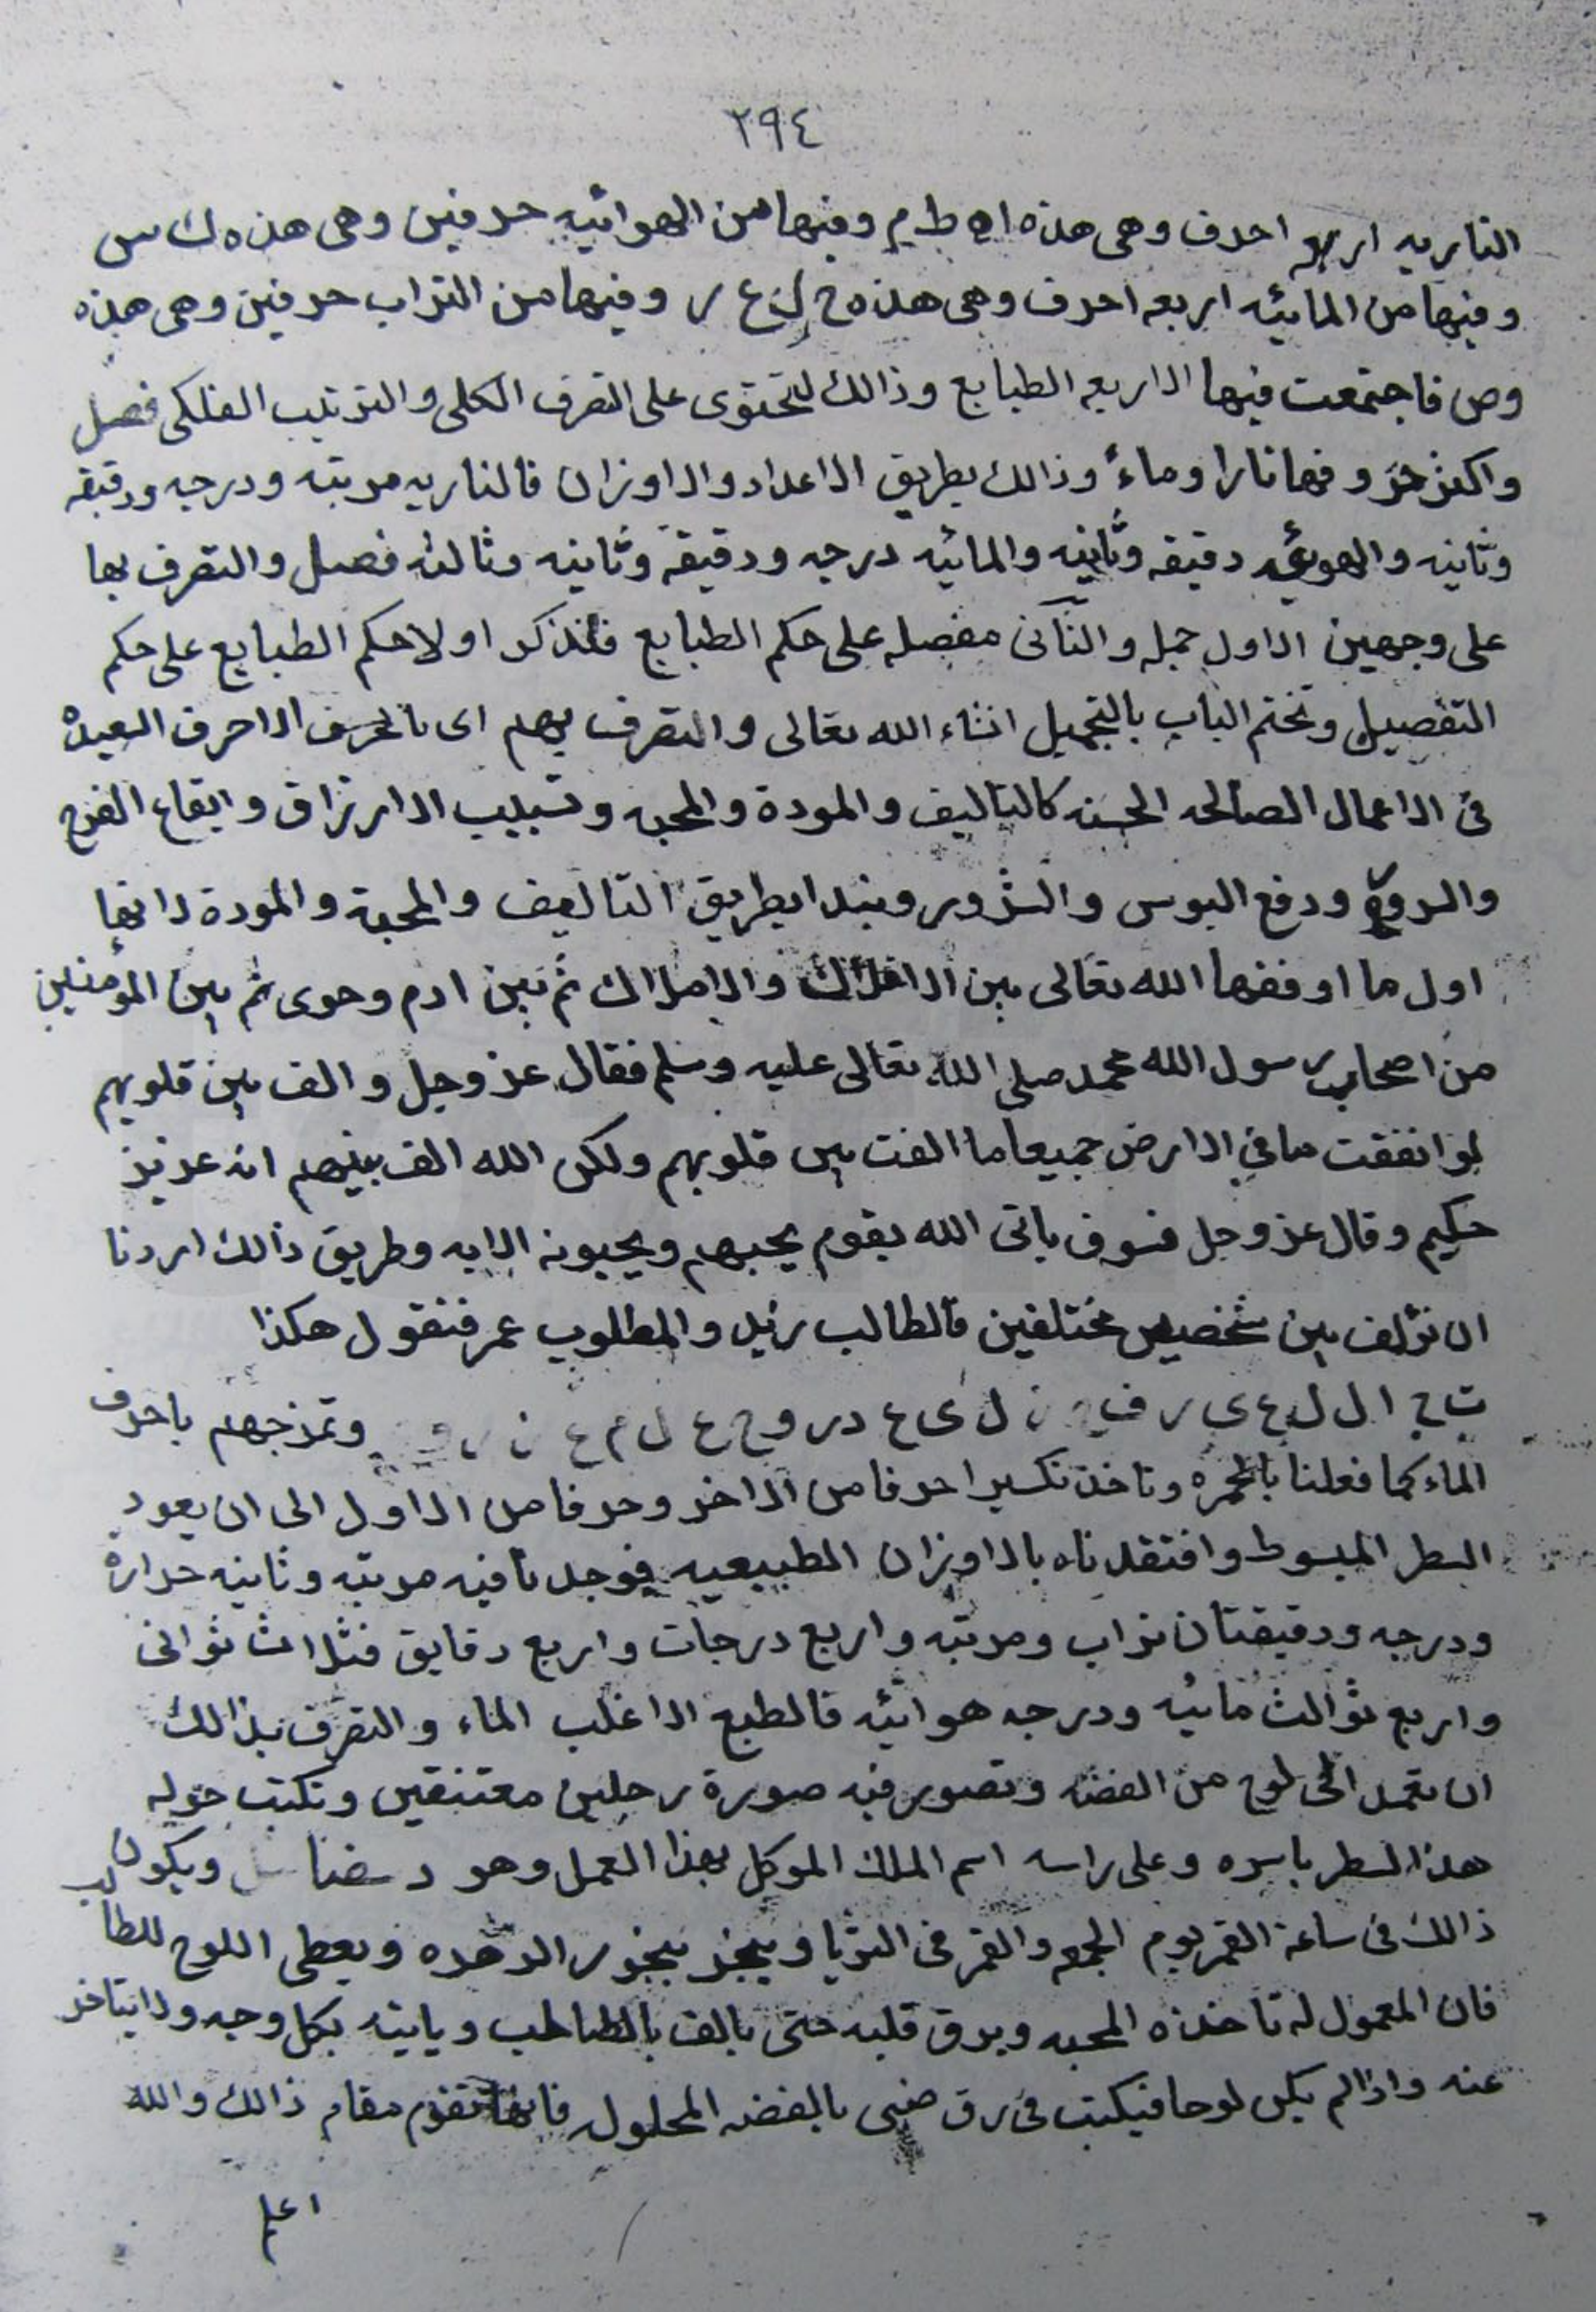 ٢٩٤
الناريه اربعه احرف وهى هذه ا ه ط م وفيها من الهوائيه حرفين وهى هذه ك س
وفيها من المائيه اربعه احرف وهى هذه ح ل ع ر وفيها من التراب حرفين وهى هذه
وص فاجتمعت فيها الاربعه الطبايع وذالك لتحتوى على التصرف الكلى والترتيب الفلكى فصل
واكثر حروفها نارا وماء وذالك بطريق الاعداد والاوزان فالناريه مرتبه ودرجه ودقيقه
وثانيه والهوئيه دقيقه وثانيه والمائيه درجه ودقيقة وثانيه وثالثه فصل والتصرف بها
على وجهين الاول جمله والثانى مفصله على حكم الطبايع فلنذكر اولا حكم الطبايع على حكم
التفصيل ونختم الباب بالتجميل انشاء الله تعالى والتصرف بهم اى بالحرف الاحرف السعيده
فى الاعمال الصالحه الحسنه كالتاليف والمودة والمحبه وتسبيب الارزاق وايقاع الفرح
ودفع البوس والشرور ونبدا بطريق التاليف والمحبة والمودة لانها
اول ما اوقفها الله تعالى بين الافلاك والاملاك ثم بين ادم وحوى ثم بين المؤمنين
من اصحاب رسول الله محمد صلى الله تعالى عليه وسلم فقال عز وجل والف بين قلوبهم
لو انفقت ما في الارض جميعا ما الفت بين قلوبهم ولكن الله الف بينهم انه عزيز
حكيم وقال عز وجل فسوف ياتى الله بقوم يحبهم ويحبونه الايه وطريق ذالك اردنا
ان نؤلف بين شخصين مختلفين فالطالب زيد والمطلوب عمر فنقول هكذا
وتمزجهم باحرف
الماء كما فعلنا بالحمره وتاخذ تكسيرا حرفا من الاخر وحرفا من الاول الى ان يعود
السطر المبسوط وافتقدناه بالاوزان الطبيعيه فوجدنا فيه مرتبه وثانيه حرارة
ودرجه ودقيقتان تراب ومرتبه واربع درجات واربع دقايق فثلاث ثوانى
واربع ثوالث مائيه ودرجه هوائيه فالطبع الاغلب الماء والتصرف بذالك
ان تعمد الى لوح من الفضه وتصور فيه صورة رجلين معتنقين وتكتب حوله
هذا السطر باسره وعلى راسه اسم الملك الموكل بهذا العمل وهو ويكون
ذالك فى ساعة القمر يوم الجمعه والقمر فى الثريا ويبخر ببخور الوهده ويعطى اللوح للطالب
فان المعمول له تاخذه المحبه ويرق قلبه حتى يالف بالطالب وياتيه بكل وجه ولا يتاخر
عنه واذا لم يكن لوحا فيكتب فى رق ضبى بالفضه المحلوله فانها تقوم مقام ذالك والله
اعلم